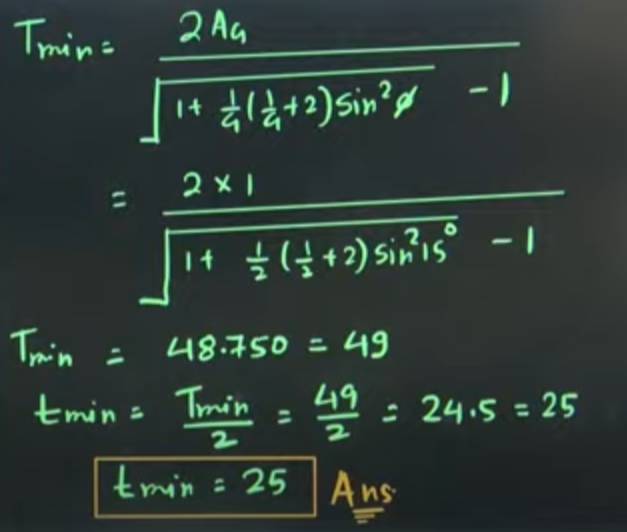 Tmin = 2 AG / √(1 + 1/G (1/G + 2) sin² φ) - 1
= 2 × 1 / √(1 + 1/2 (1/2 + 2) sin² 15°) - 1
Tmin = 48.750 = 49
tmin = Tmin / 2 = 49 / 2 = 24.5 = 25
tmin = 25 Ans.